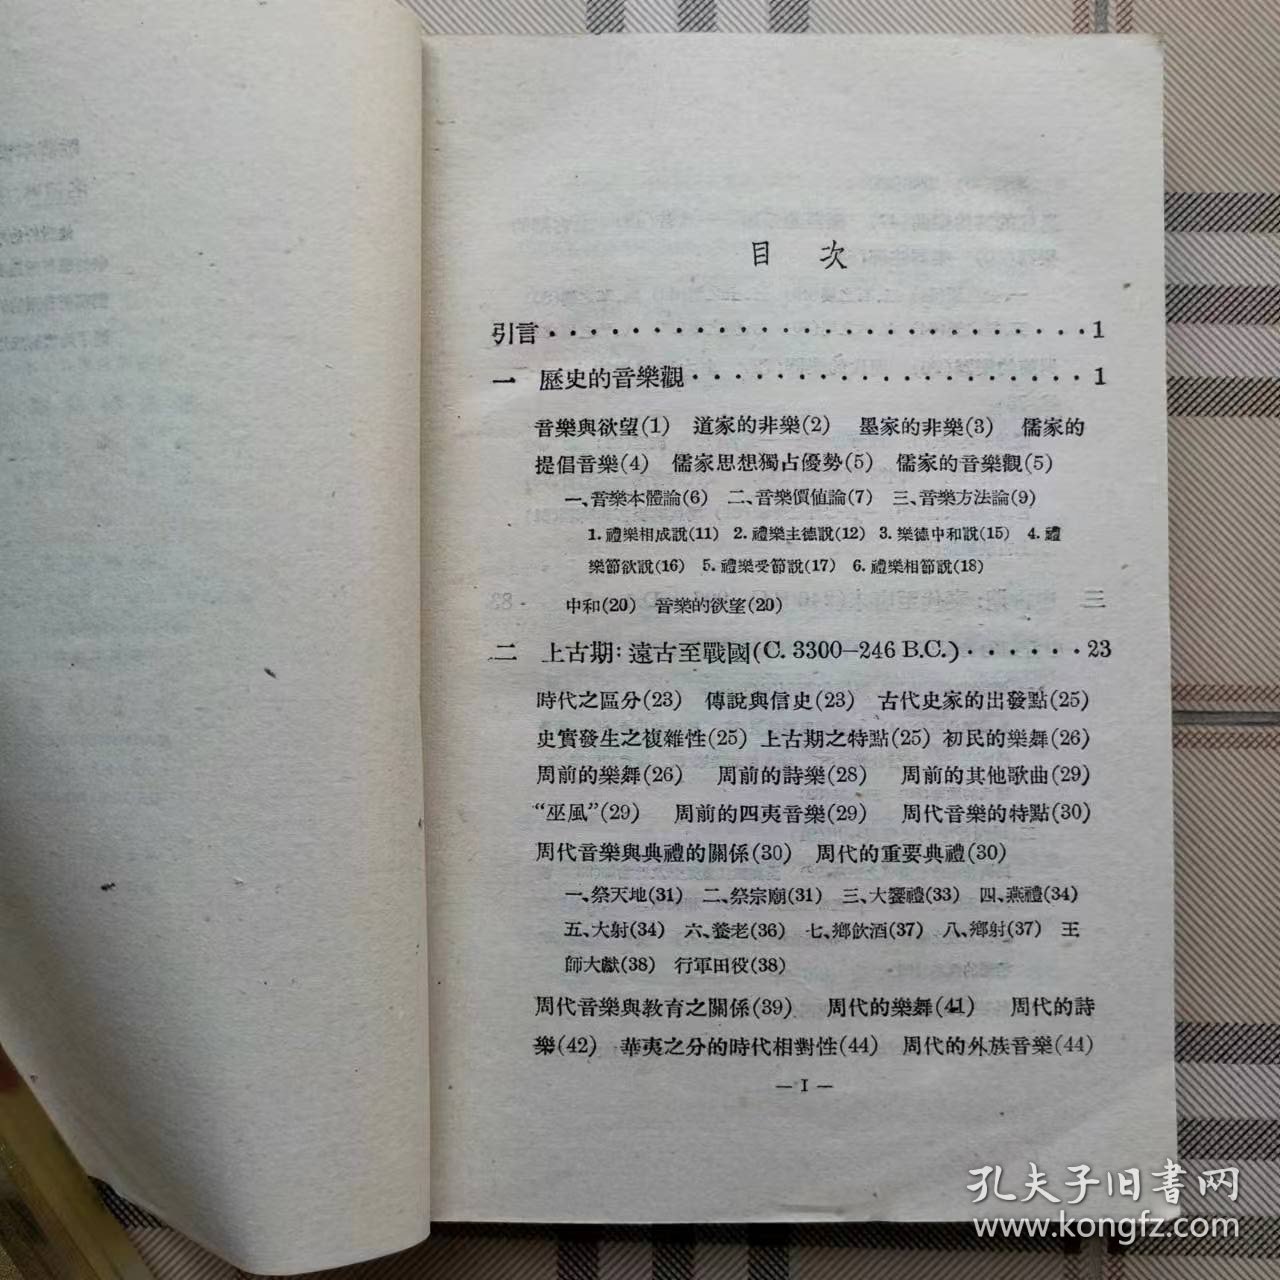 目 次
引言・・・・・・・・・・・・・・・・・・・・・・・・・1
一 歷史的音樂觀・・・・・・・・・・・・・・・・・・1
音樂與欲望(1) 道家的非樂(2) 墨家的非樂(3) 儒家的
提倡音樂(4) 儒家思想獨占優勢(5) 儒家的音樂觀(5)
一、音樂本體論(6) 二、音樂價値論(7) 三、音樂方法論(9)
1. 禮樂相成說(11) 2. 禮樂主德說(12) 3. 樂德中和說(15) 4. 禮
樂節欲說(16) 5. 禮樂受節說(17) 6. 禮樂相節說(18)
中和(20) 音樂的欲望(20)
二 上古期：遠古至戰國(C. 3300—246 B.C.)・・・・・・23
時代之區分(23) 傳說與信史(23) 古代史家的出發點(25)
史實發生之複雜性(25) 上古期之特點(25) 初民的樂舞(26)
周前的樂舞(26) 周前的詩樂(28) 周前的其他歌曲(29)
“巫風”(29) 周前的四夷音樂(29) 周代音樂的特點(30)
周代音樂與典禮的關係(30) 周代的重要典禮(30)
一、祭天地(31) 二、祭宗廟(31) 三、大饗禮(33) 四、燕禮(34)
五、大射(34) 六、養老(36) 七、鄉飲酒(37) 八、鄉射(37) 王
師大獻(38) 行軍田役(38)
周代音樂與教育之關係(39) 周代的樂舞(41) 周代的詩
樂(42) 華夷之分的時代相對性(44) 周代的外族音樂(44)
— I —
孔夫子旧書网
www.kongfz.com